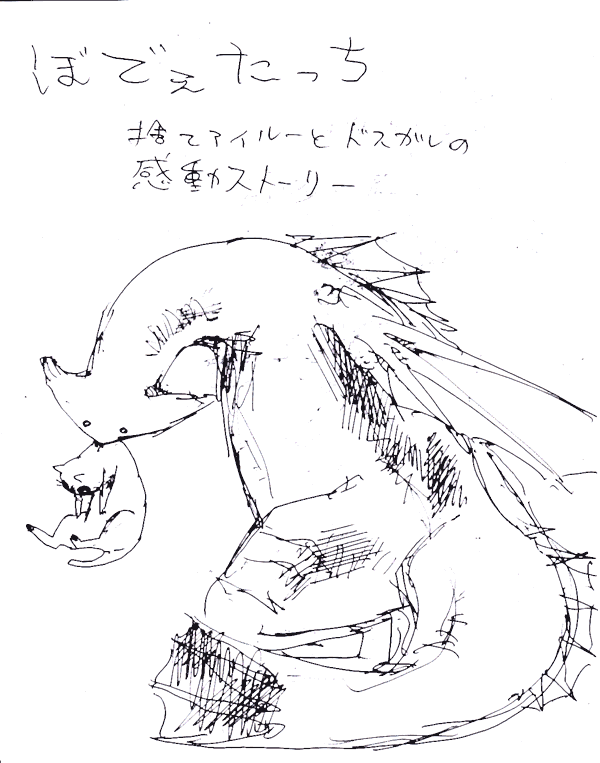 ぼでぇたっち
捨てアイルーとドスガレの
感動ストーリー